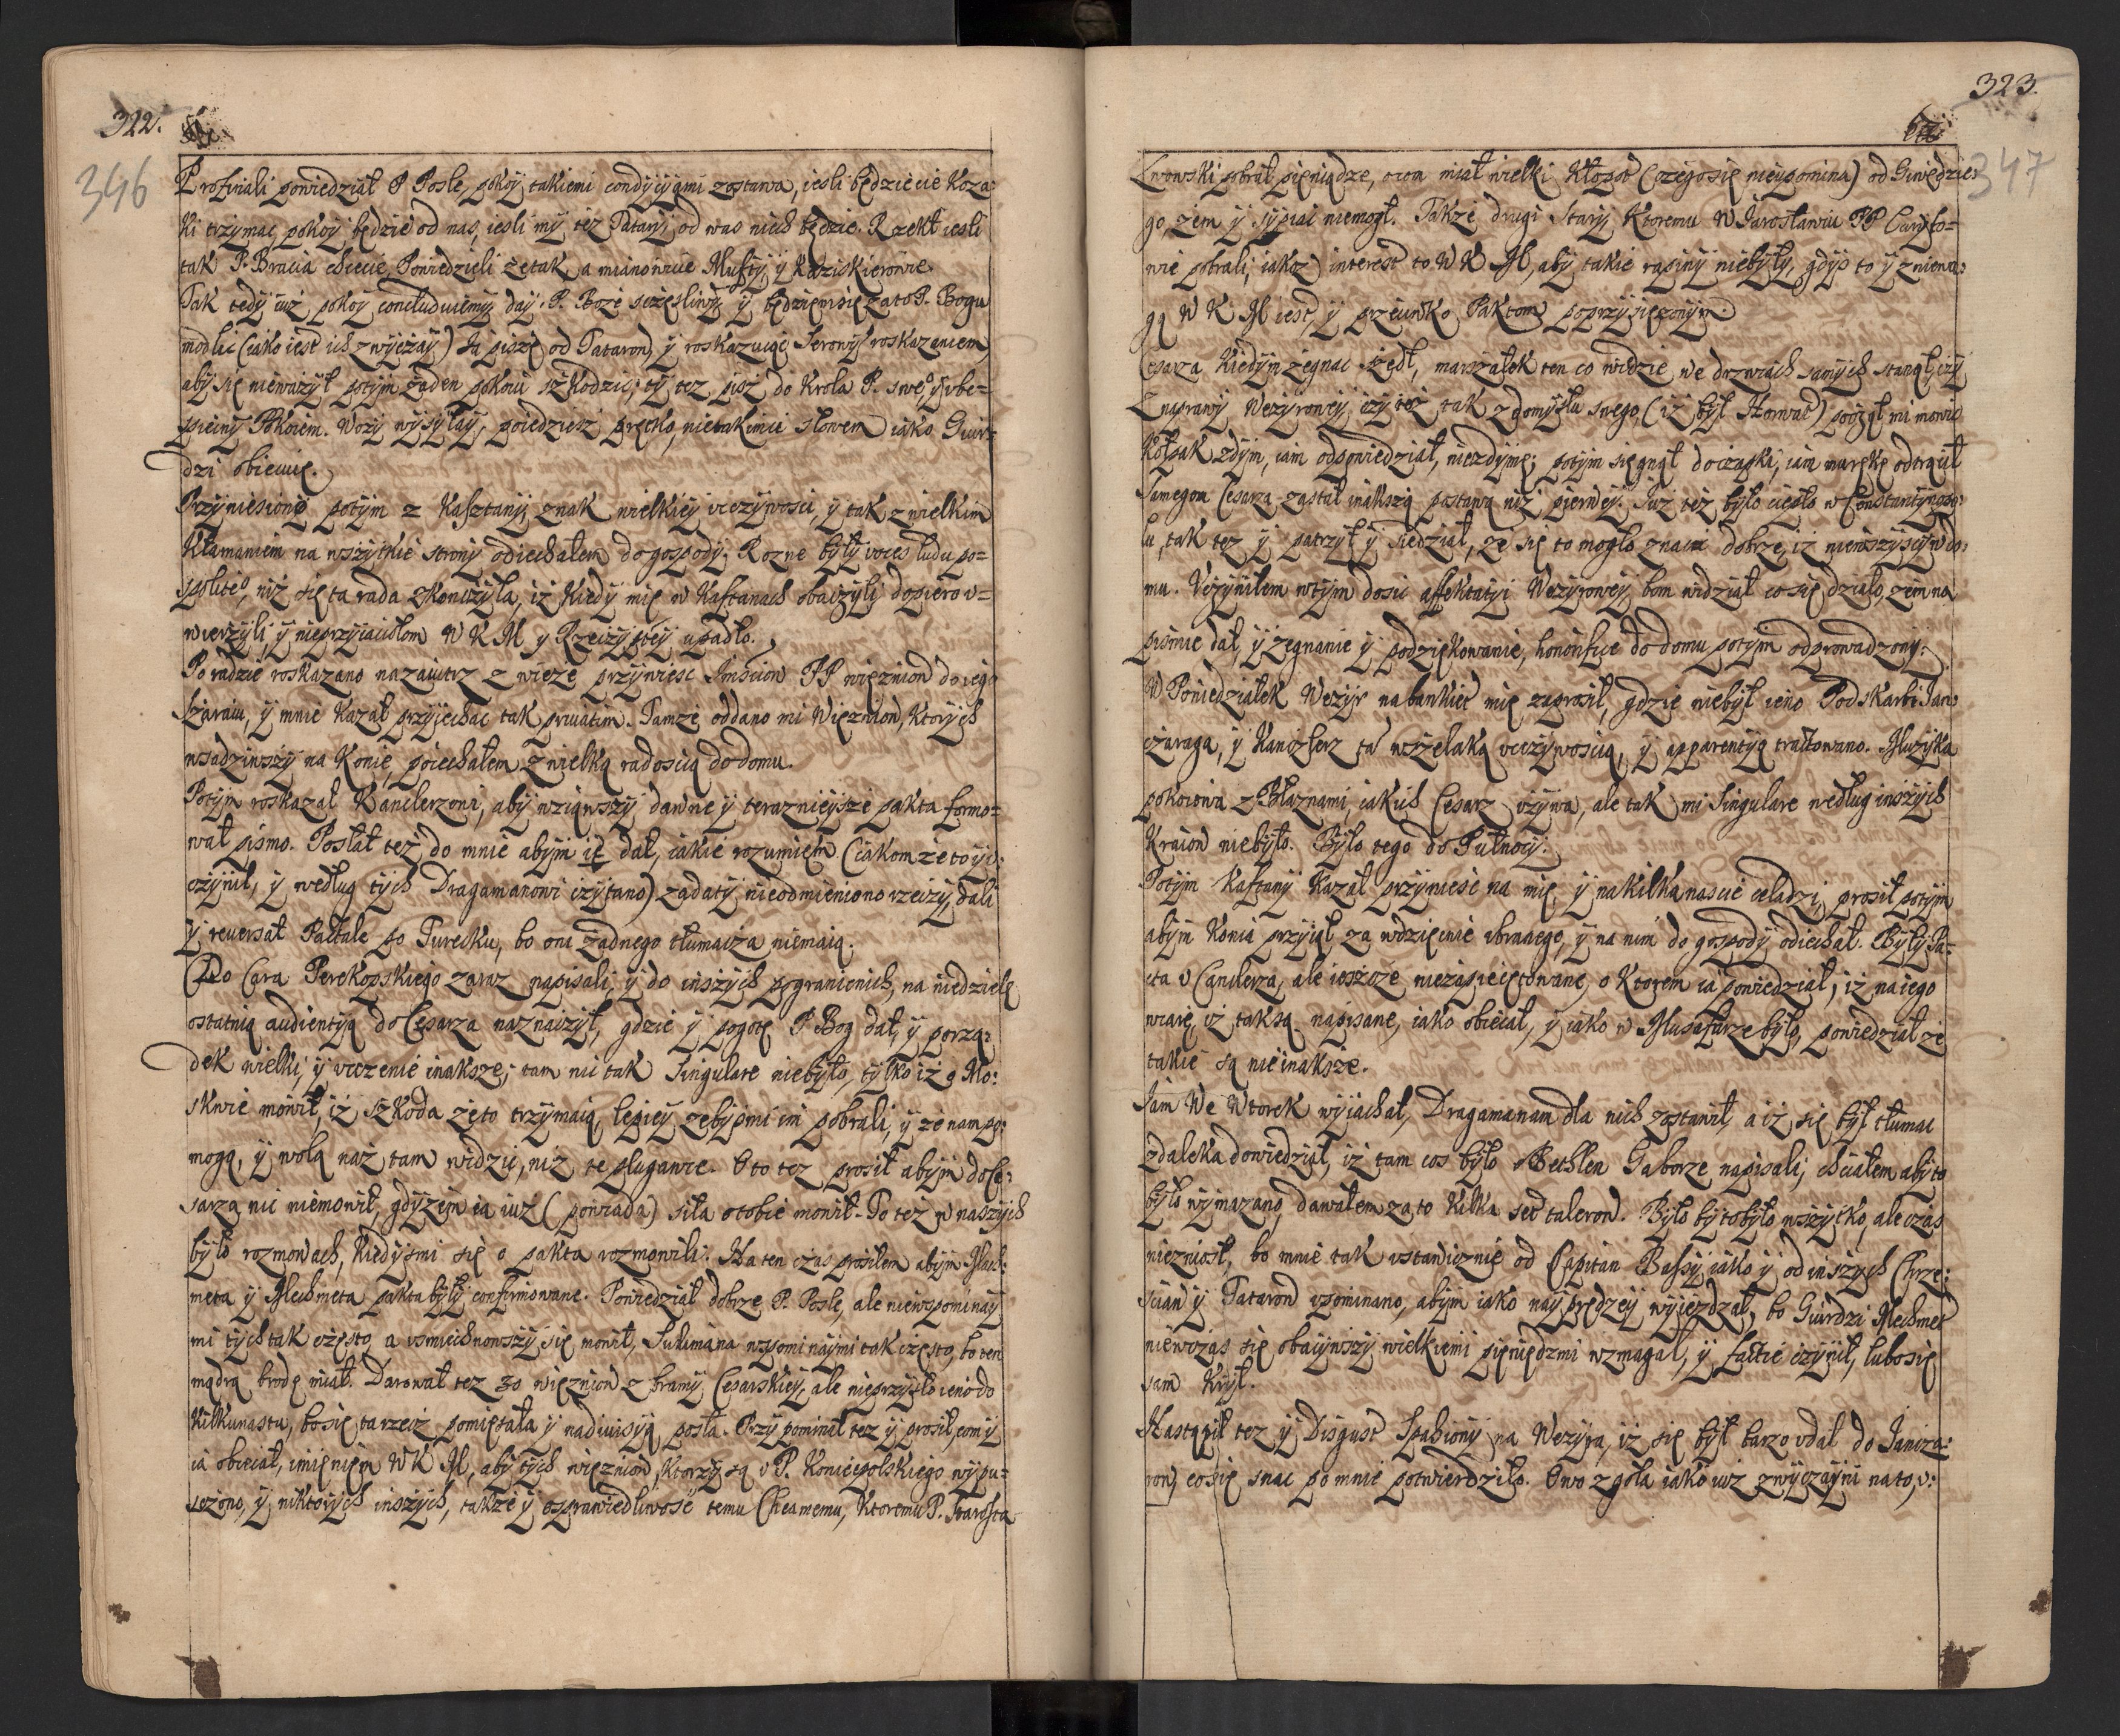 322.
346
Profinali powiedział P Posle, pokoy takiemi condycyami zostawa, iesli będziecie Koza:
ki trzymac, pokoy będzie od nas, iesli my też Tatary, od was niech będzie. Rzekł iesli
tak P. Bracia chcecie, Powiedzieli że tak, a mianowicie Mufty, y Kaziskierowie.
Tak tedy iuż pokoy concluduiemy, day P. Boże sczęsliwy, y będziem się za to P. Bogu
modlic (iako iest ich zwyczay) Ja piszę od Tatarow, y roskazuię Serowym roskazaniem
aby się nieważył potym żaden pokoiu szkodzic; ty tez pisz do Krola P. swe° y vbe=
piecmy Pokoiem. Wozy wysyłay, poiedziesz prętko, nietakimci słowem iako Giur=
dzi obiecuię.
Przyniesiono potym z Kasztany, znak wielkiey vczywosci, y tak z wielkim
kłamaniem na wszytkie strony odiechałem do gospody. Rozne były voces ludu po=
spolite°, niż się ta rada skonczyła, iż kiedy mię w Kaftanach obaczyli, dopiero v=
wierzyli, y nieprzyiaciołom W K M y Rzeczyptey upadło.
Po radzie roskazano nazaiutrz z wieze przywiesc Jmsciow PP więzniow do iego
Szaraiu, y mnie kazał przyiechac tak priuatim. Tamze oddano mi Więzniow, ktorych
wsadziwszy na Konie, poiechałem z wielką radoscią do domu.
Potym roskazał Kanclerzowi, aby wziąwszy dawne y teraznieysze pakta formo=
wał pismo. Posłał też do mnie abym ie dał, iakie rozumiem (iakom że to vi:
czynił, y według tych Dragamanowi czytano) żadaty nieodmieniono rzeczy, dali
y reuersał Pactale po Turecku, bo oni żadnego tłumacza niemaią.
Do Cara Perekopskiego zaraz napisali, y do inszych pogranicnich, na niedzielę
ostatnią audientyą do Cesarza naznaczył, gdzie y pogodę P. Bog dał, y porzą:
dek wielki, y vczczenie inaksze; tam nic tak singulare niebyło, tylko iż o Mo:
skwie mowił, iż szkoda że to trzymaią, lepiey żebysmi im pobrali, y że nam po:
mogą, y wolą naż tam widzic, niż te plugawce. O to też prosił abym do Ce:
sarza nic niemowił, gdyżem ia iuż (powiada) siła o tobie mowił. To też w naszych
było rozmowach, kiedysmi się o pakta rozmowili. Na ten czas prosiłem abym Mach:
meta y Mechmeta pakta były confirmowane. Powiedział dobrze P. Posle, ale niewspominay
mi tych tak często, a vsmiechnowszy się mowił, Sulimana wspominaymi tak często, bo ten
mądrą brodę miał. Darował tez 30 więzniow z bramy Cesarskiey, ale nieprzyszło ieno do
kilkunastu, bo się ta rzecz pomięszała y na diuisyą poszła. Przypominał tez y prosił, com y
ia obiecał, imieniem W K M, aby tych więzniow, ktorzy są v P. Koniecpolskiego wypu=
sczono, y niktorych inszych, także y osprawiedliwosc temu Cheamemu, ktoremu P. Starosta
323.
347
Lwowski pobrał pieniądze, ocom miał wielki kłopot (czego się nieypomina) od Giwędzie:
go, żem y sypiac niemogł. Takze drugi Stary, ktoremu W Jarosławiu PP Curyło=
wie pobrali, iakoż interest to W K M, aby takie rapiny niebyły, gdyż to y zniewa:
gą W K M iest, y przeciwko Paktom poprzysiężonym.
Cesarza kiedym żegnac szedł, marszałek ten co widzie, we drzwiach samych stanął, czy
z naprawy Wezyrowey, czy też tak z domysłu swego, (iż był Horwat) począł mi mowic
Kołpak zdym, iam odpowiedział, niezdymę; potym sięgnął do czapki, iam mu rękę odtrącił
Samegom Cesarza zastał inakszą postawą niż pierwey. Już też było ciepło w Constantynopo:
lu, tak tez y patrzył y siedział, że się to mogło znacz dobrze, iż niewszyscy w do:
mu. Vczyniłem wtym dosic affektatyi Wezyrowey, bom widział co się działo, żem na
pismie dał, y żegnanie y podziękowanie, honorifice do domu potym odprowadzony.
W Poniedziałek Wezyr na bankiet mię zaprosił, gdzie niebył ieno Podskarbi Jan:
czaraga, y Kanczlerz ta wszelaką vczywoscią, y apparentyą traktowano. Muzyka
pokoiowa z Błaznami, iakich Cesarz vżywa, ale tak mi singulare według inszych
Kraiow niebyło. Było tego do Pułnocy.
Potym Kaftany kazał przyniesc na mię y na kilkanascie czeladzi, prosił potym
abym Konia przyiął za wdzięcnie vbranego, y na nim do gospody odiechał. Były Pa=
cta v Canclerza, ale iescze niezapieczętowane, o ktorem ia powiedział, iż na iego
wiarę, iż tak są napisane, iako obiecał, y iako w Musafarze było, powiedział że
takie są nieinaksze.
Jam We Wtorek wyiachał, Dragamanam dla nich zostawił, a iż się był tłumac
zdaleka dowiedział, iż tam cos było o Bethlen Gaborze napisali, chciałem aby to
było wymazano, dawałem za to kilka set talerow. Było by to było wszytko, ale czas
nieznosł, bo mnie tak vstawicznie od Capitan Baszy, iako y od inszych Chrze:
scian y Tatarow vpominano, abym iako nayprędzey wyiezdzał, bo Giurdzi Mechmet
niewczas się obaczywszy wielkiemi pieniędzmi wzmagał, y factie czynił, lubo się
sam krył.
Nastąpił tez y Disgust Spahiowy na Wezyra, iż się był barzo vdał do Janiza:
row, co się snac po mnie potwierdziło. Owo zgoła iako iuż zwyczayni na to, v: